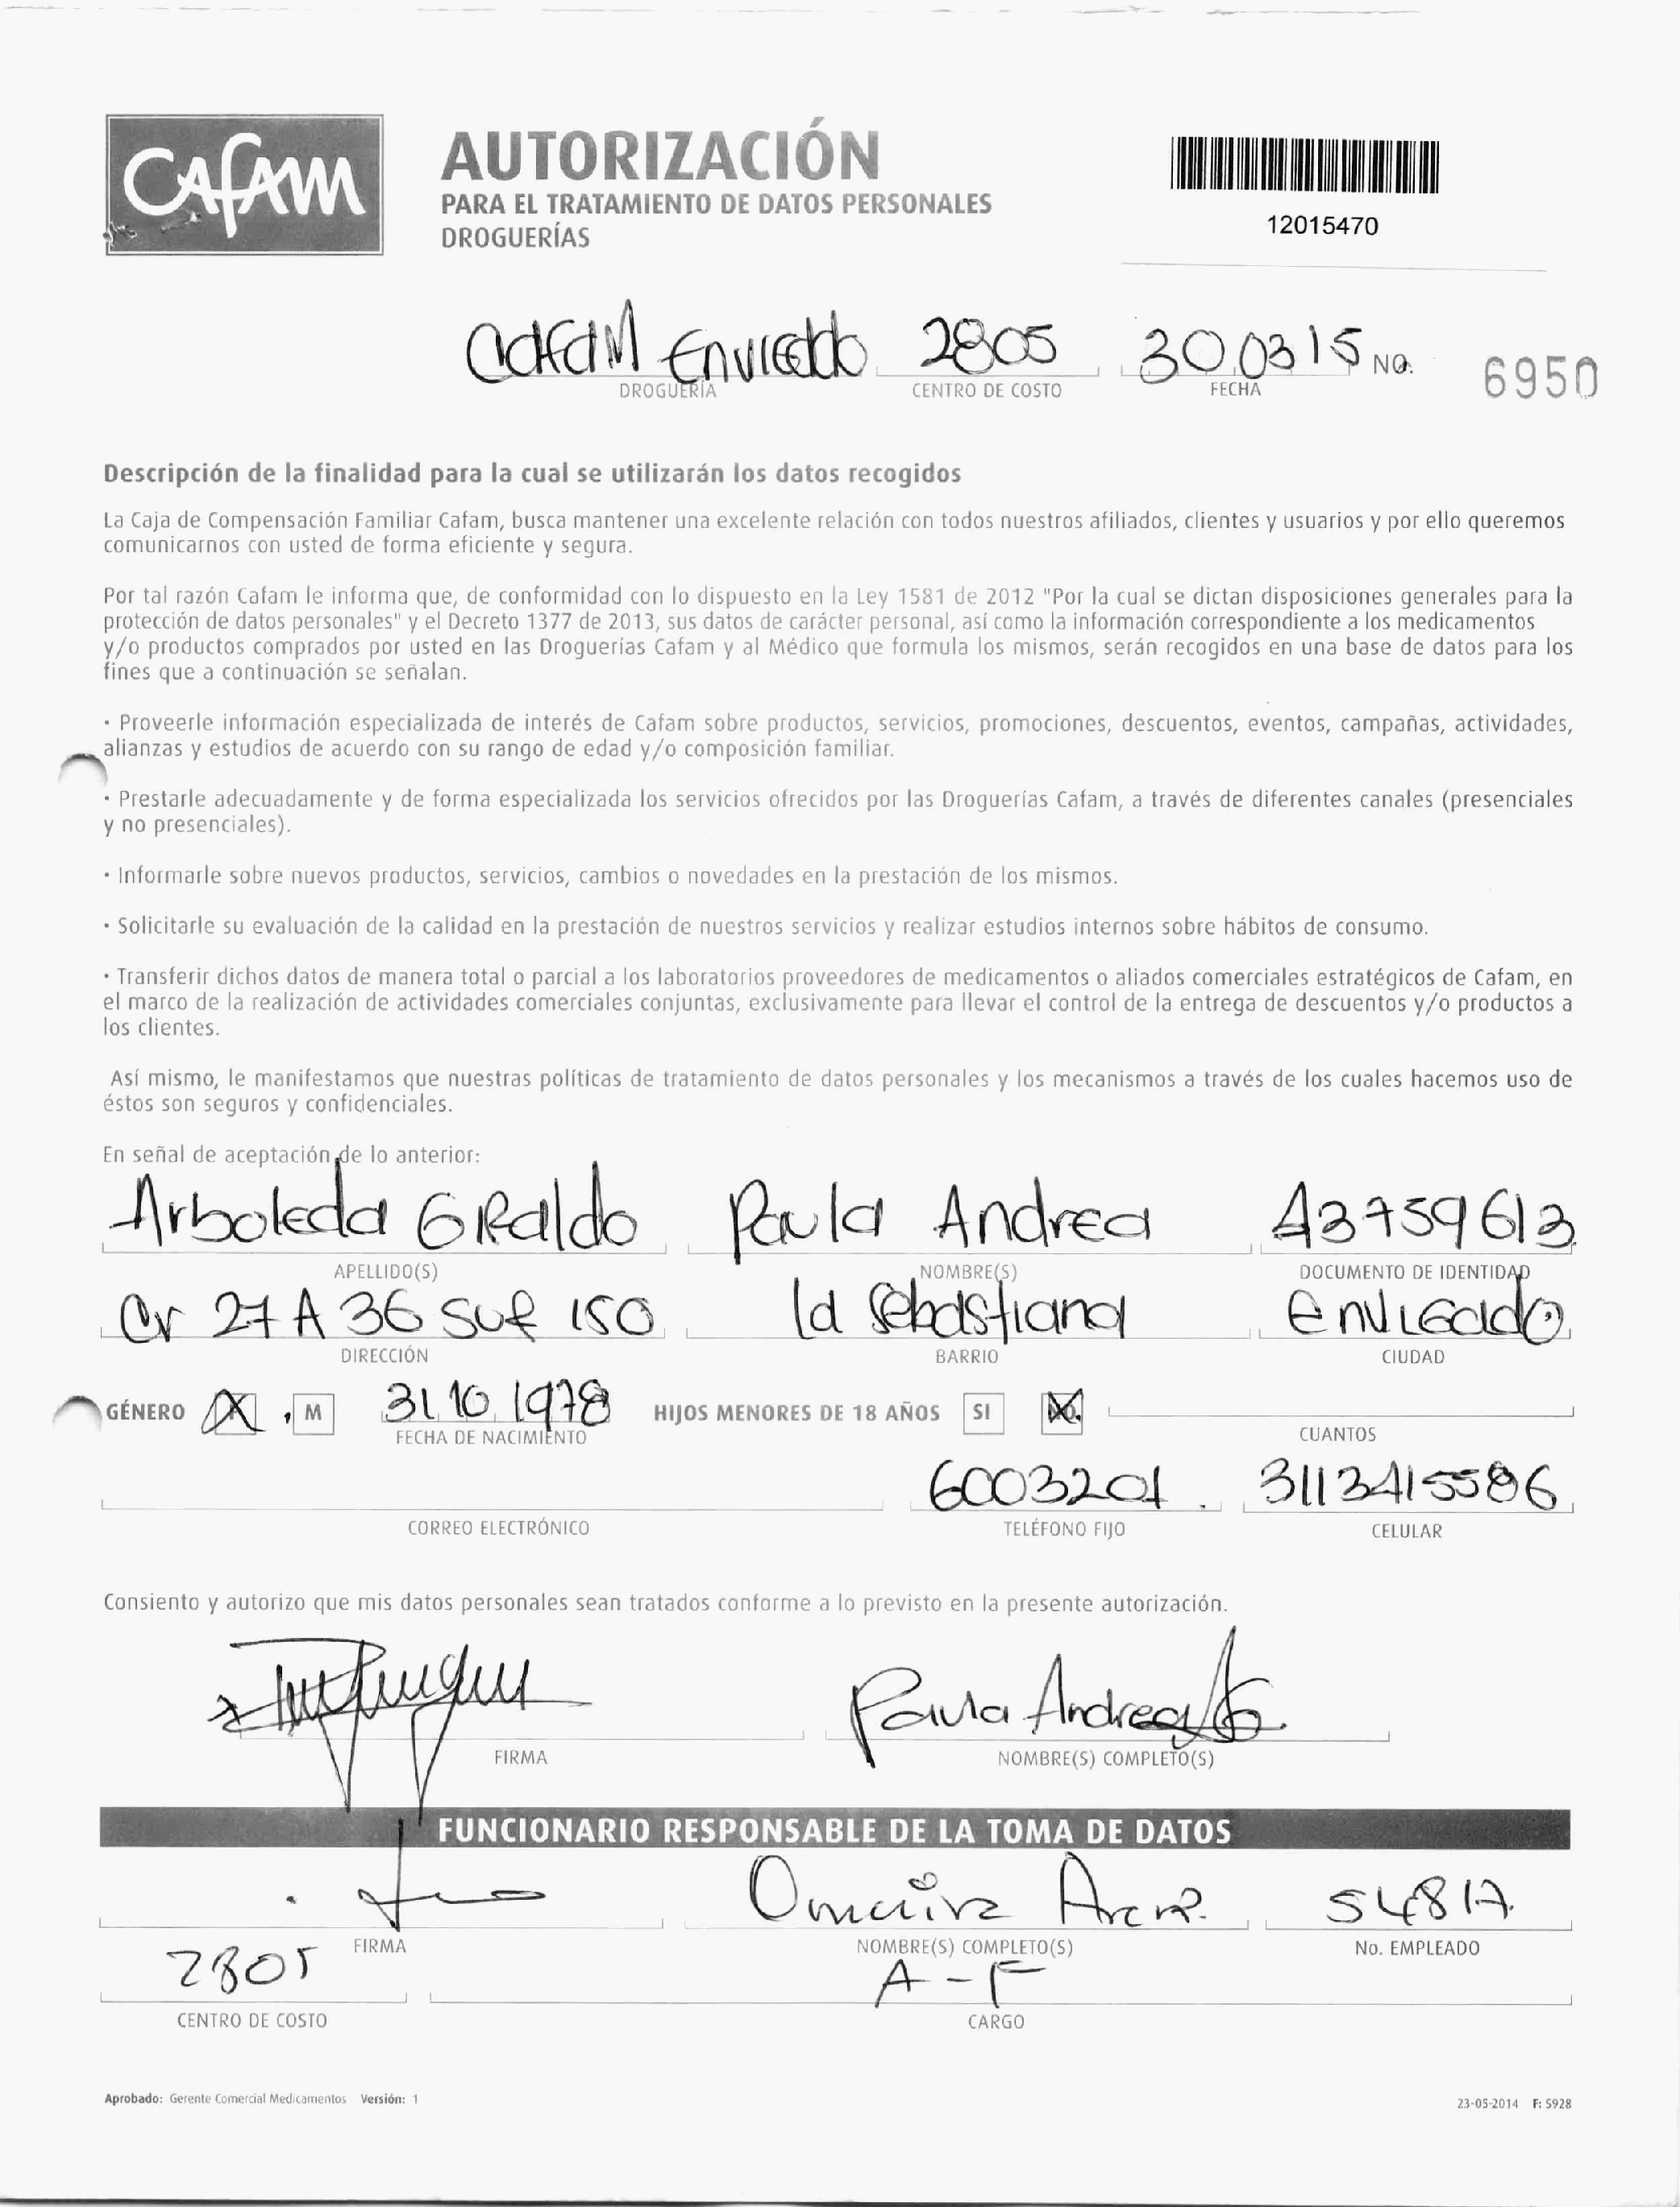 CAFAM
AUTORIZACIÓN
PARA EL TRATAMIENTO DE DATOS PERSONALES
DROGUERÍAS
12015470
CAFAM Envigado 2805 30 03 15 NO. 6950
DROGUERÍA CENTRO DE COSTO FECHA
Descripción de la finalidad para la cual se utilizarán los datos recogidos
La Caja de Compensación Familiar Cafam, busca mantener una excelente relación con todos nuestros afiliados, clientes y usuarios y por ello queremos
comunicarnos con usted de forma eficiente y segura.
Por tal razón Cafam le informa que, de conformidad con lo dispuesto en la Ley 1581 de 2012 "Por la cual se dictan disposiciones generales para la
protección de datos personales" y el Decreto 1377 de 2013, sus datos de carácter personal, así como la información correspondiente a los medicamentos
y/o productos comprados por usted en las Droguerías Cafam y al Médico que formula los mismos, serán recogidos en una base de datos para los
fines que a continuación se señalan.
· Proveerle información especializada de interés de Cafam sobre productos, servicios, promociones, descuentos, eventos, campañas, actividades,
alianzas y estudios de acuerdo con su rango de edad y/o composición familiar.
· Prestarle adecuadamente y de forma especializada los servicios ofrecidos por las Droguerías Cafam, a través de diferentes canales (presenciales
y no presenciales).
· Informarle sobre nuevos productos, servicios, cambios o novedades en la prestación de los mismos.
· Solicitarle su evaluación de la calidad en la prestación de nuestros servicios y realizar estudios internos sobre hábitos de consumo.
· Transferir dichos datos de manera total o parcial a los laboratorios proveedores de medicamentos o aliados comerciales estratégicos de Cafam, en
el marco de la realización de actividades comerciales conjuntas, exclusivamente para llevar el control de la entrega de descuentos y/o productos a
los clientes.
Así mismo, le manifestamos que nuestras políticas de tratamiento de datos personales y los mecanismos a través de los cuales hacemos uso de
éstos son seguros y confidenciales.
En señal de aceptación de lo anterior:
Arboleda GIRaldo Paula Andrea 43759613
APELLIDO(S) NOMBRE(S) DOCUMENTO DE IDENTIDAD
Cr 27 A 36 SUR 150 la Sebastiana Envigado
DIRECCIÓN BARRIO CIUDAD
GÉNERO X M 31 10 1978 HIJOS MENORES DE 18 AÑOS SI NO
FECHA DE NACIMIENTO CUANTOS
6003201 3113415586
CORREO ELECTRÓNICO TELÉFONO FIJO CELULAR
Consiento y autorizo que mis datos personales sean tratados conforme a lo previsto en la presente autorización.
Paula Andrea
FIRMA NOMBRE(S) COMPLETO(S)
FUNCIONARIO RESPONSABLE DE LA TOMA DE DATOS
Omaira 54817
FIRMA NOMBRE(S) COMPLETO(S) No. EMPLEADO
2805 A-F
CENTRO DE COSTO CARGO
Aprobado: Gerente Comercial Medicamentos Versión: 1 23-05-2014 F: 5928